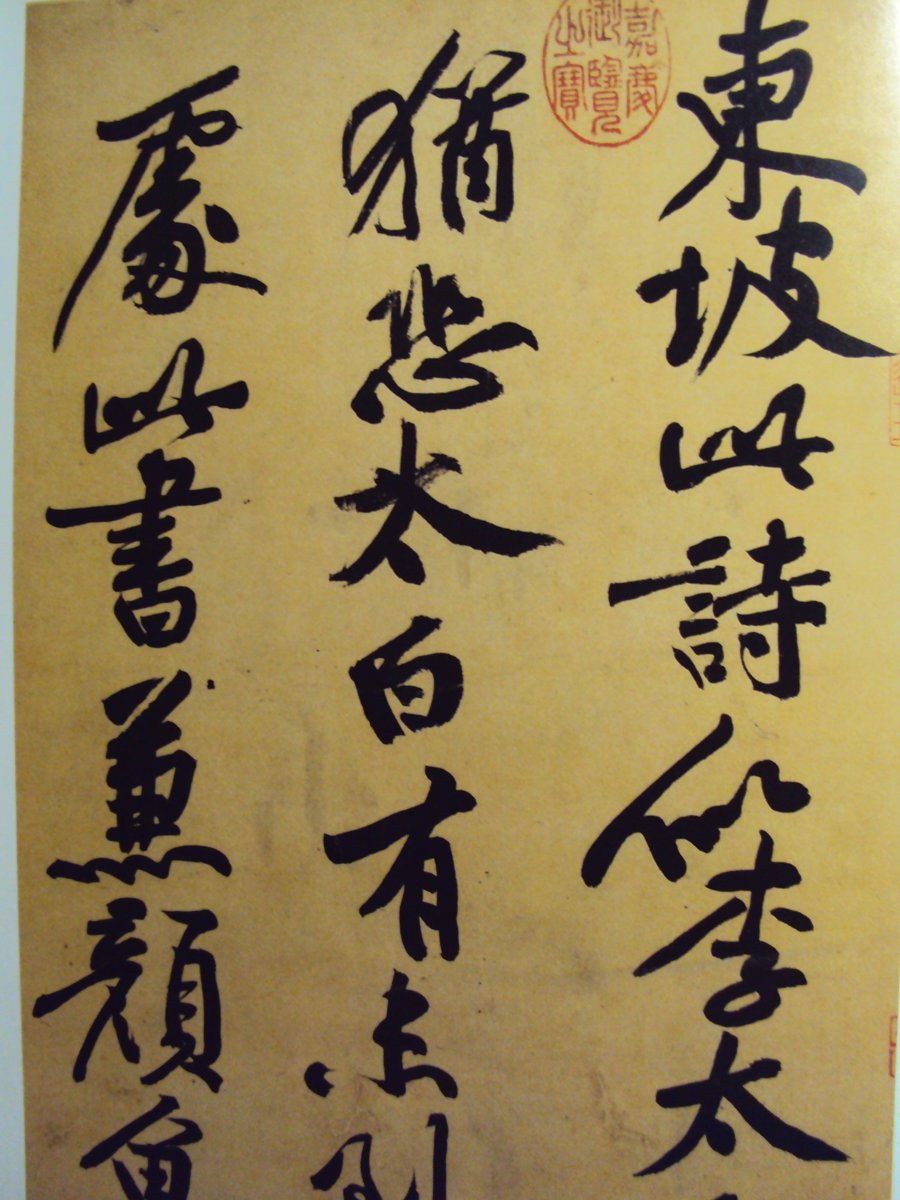 東坡此詩似李太
猶恐太白有未到
處此書兼顏魯
嘉慶御覽之寶